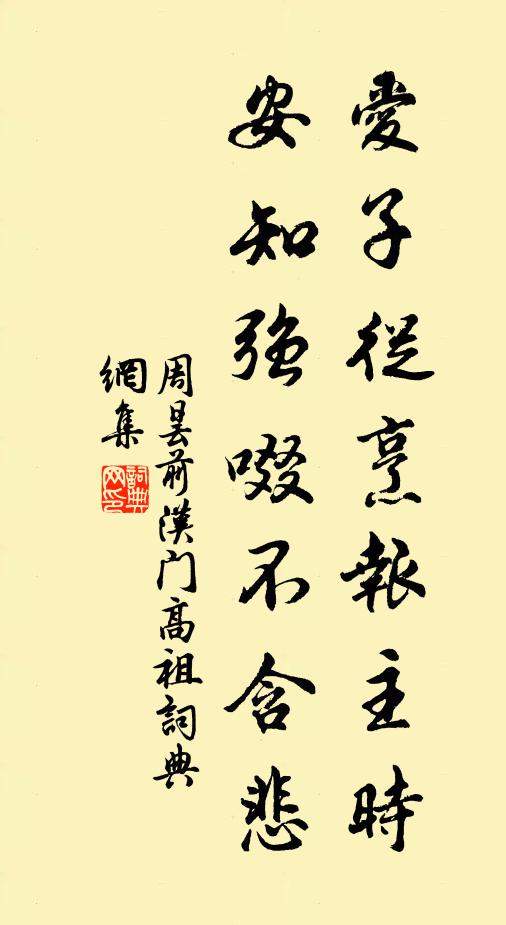 愛子從烹報主時
安知強啜不含悲
周曇前漢門高祖詞典
網集
詞典網印